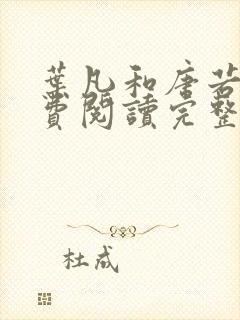 葉凡和唐若
費閱讀完整
杜成